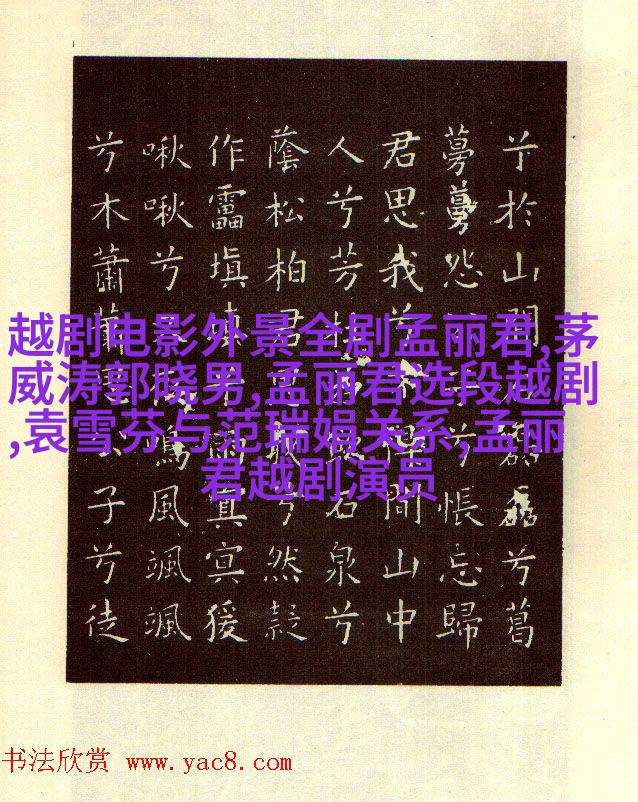 兮於山間磊兮葛
蔓蔓怨子兮悵忘歸
君思我兮不得間山中
人兮芳杜石泉兮
蔭松柏君思我兮然疑
作靁填填雨冥冥猨
啾啾兮鳴風颯颯
兮木蕭蕭子兮徒
越剧电影外景全剧孟丽君,茅
威涛郭晓男,孟丽君选段越剧
,袁雪芬与范瑞娟关系,孟丽
君越剧演员
书法欣赏 www.yac8.com